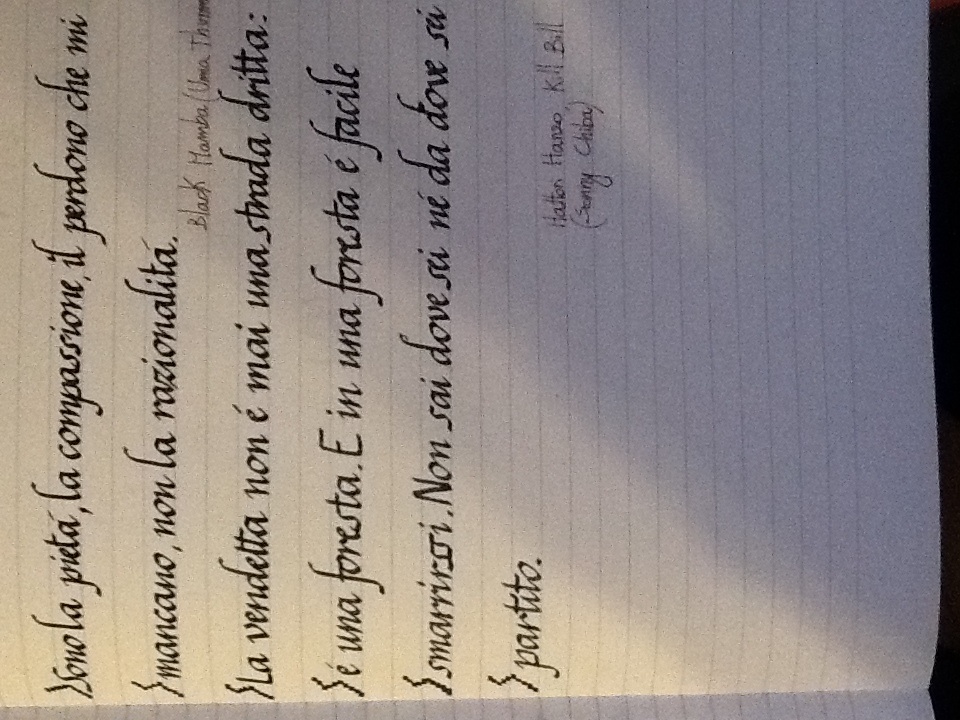 Sono la pietá, la compassione, il perdono che mi
mancano, non la razionalitá.
Black Mamba (Uma Thurman
La vendetta non é mai una strada dritta:
é una foresta. E in una foresta é facile
smarrirsi. Non sai dove sei né da dove sei
partito.
Hattori Hanzo Kill Bill
(Sonny Chiba)